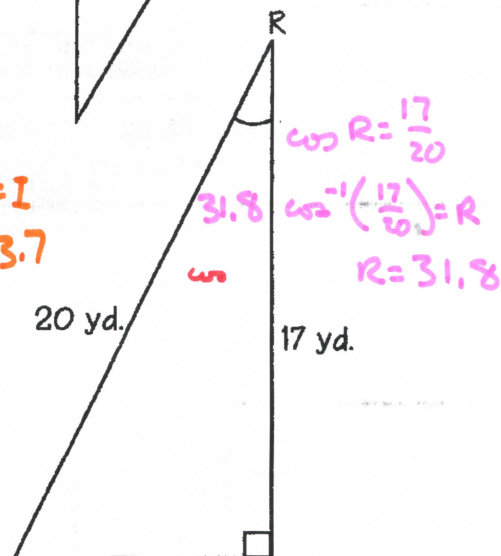 R
cos R = 17/20
= I
31.8
cos⁻¹(17/20) = R
3.7
R = 31.8
cos
20 yd.
17 yd.